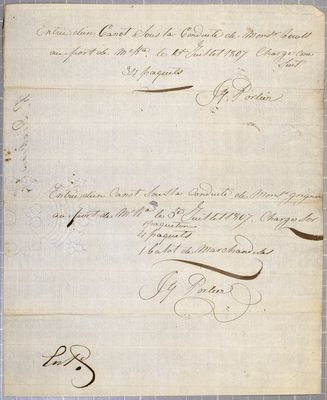 Entrée d'un Canot Sous la Conduite de Monsr
au port de Mk.na le 1er Juillet 1807 Chargé Com
Suit
34 paquets
J.ph Portier
Entrée d'un Canot Sous la Conduite de Monsr grignon
au port de Mk.na le 5e Juillet 1807. Chargé
4 paquets
1 balot de Marchandises
J.ph Portier